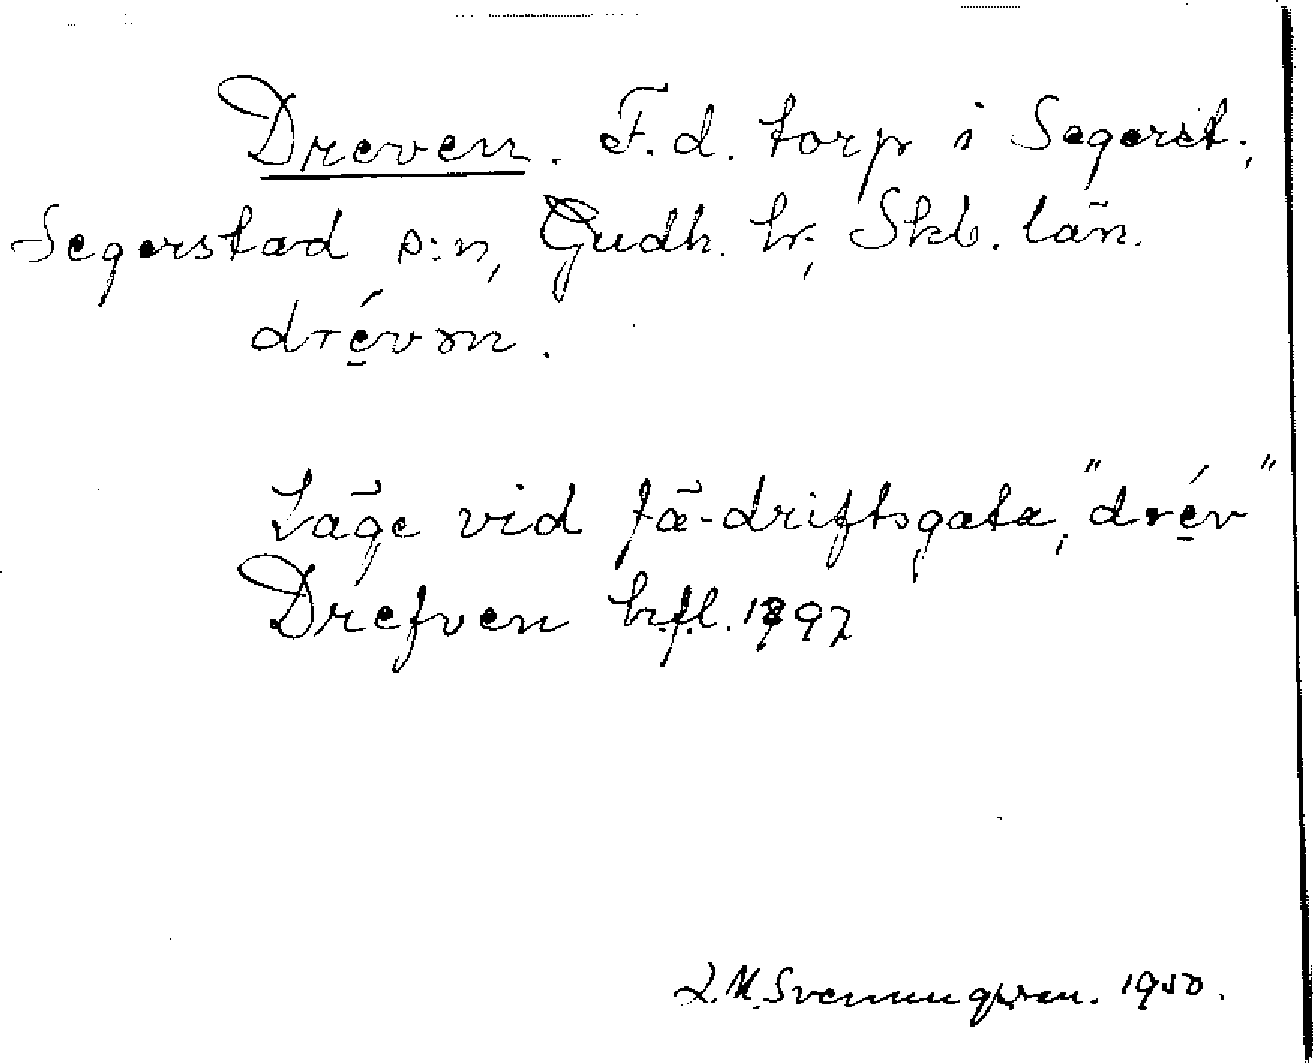 Dreven. F.d. torp i Segerst.,
Segerstad s:n, Gudh. hr., Skb. län.
drévən.
Läge vid fä-driftsgata, "drév"
Drefven hfl. 1897
L.M. Svenungsson. 1950.